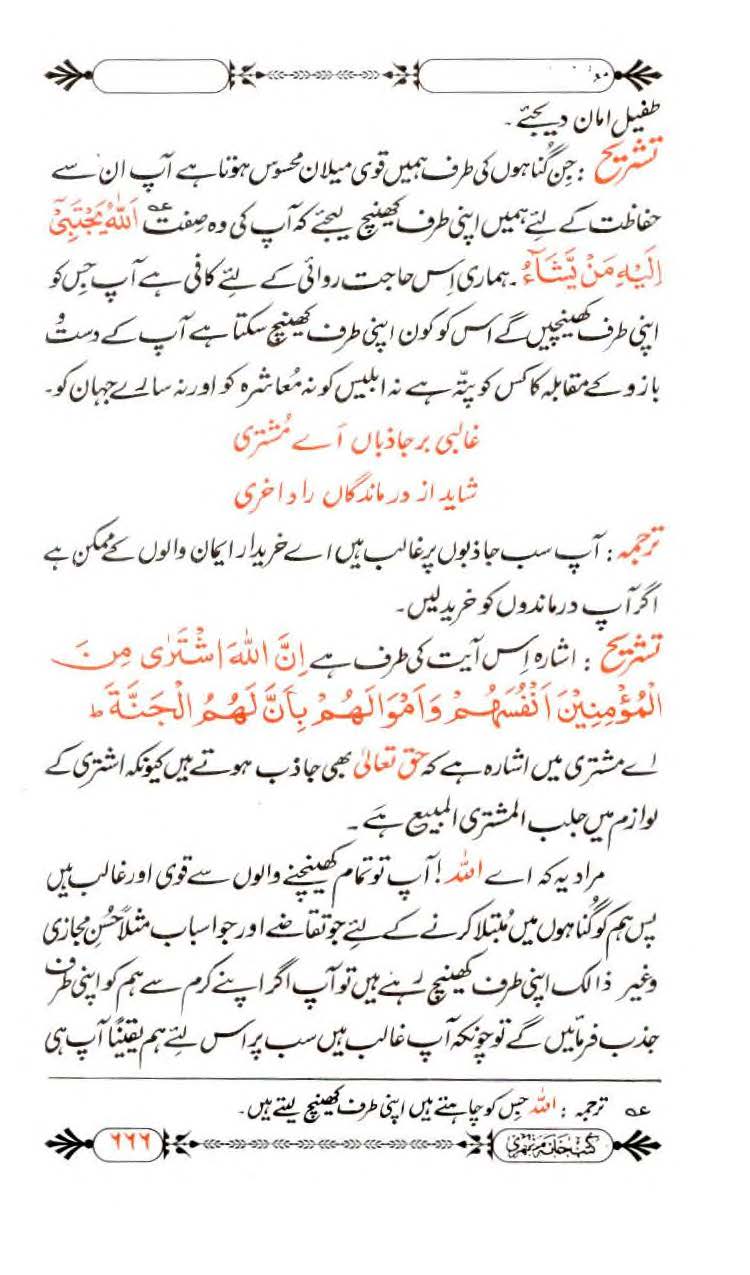 طفیل امان دیجئے۔
تشریح : جن گناہوں کی طرف ہمیں قوی میلان محسوس ہوتا ہے آپ ان سے
حفاظت کے لئے ہمیں اپنی طرف کھینچ لیجئے کہ آپ کی وہ صفت عہ اَللّٰهُ يَجْتَبِيْٓ
اِلَيْهِ مَنْ يَّشَآءُ۔ ہماری اِس حاجت روائی کے لئے کافی ہے آپ جس کو
اپنی طرف کھینچیں گے اس کو کون اپنی طرف کھینچ سکتا ہے آپ کے دست و
بازو کے مقابلہ کا کس کو پتّہ ہے نہ ابلیس کو نہ مُعاشرہ کو اور نہ سارے جہان کو۔
غالبی بر جاذباں اَے مُشتری
شاید از درماندگاں را واخری
ترجمہ : آپ سب جاذبوں پر غالب ہیں اے خریدار ایمان والوں کے ممکن ہے
اگر آپ درماندوں کو خرید لیں۔
تشریح : اشارہ اِس آیت کی طرف ہے اِنَّ اللّٰهَ اشْتَرٰى مِنَ
الْمُؤْمِنِيْنَ اَنْفُسَهُمْ وَاَمْوَالَهُمْ بِاَنَّ لَهُمُ الْجَنَّةَ ط
اے مشتری میں اشارہ ہے کہ حق تعالیٰ بھی جاذب ہوتے ہیں کیونکہ اشتری کے
لوازم میں جلب المشتری المبیع ہے۔
مراد یہ کہ اے اللہ ! آپ تو تمام کھینچنے والوں سے قوی اور غالب ہیں
پس ہم کو گُناہوں میں مُبتلا کرنے کے لئے جو تقاضے اور جو اسباب مثلاً حُسنِ مجازی
وغیر ذالک اپنی طرف کھینچ رہے ہیں تو آپ اگر اپنے کرم سے ہم کو اپنی طرف
جذب فرمائیں گے تو چونکہ آپ غالب ہیں سب پر اس لئے ہم یقینًا آپ ہی
عہ ترجمہ : اللہ جس کو چاہتے ہیں اپنی طرف کھینچ لیتے ہیں۔
کتب خانہ مظہری
۶۶۶